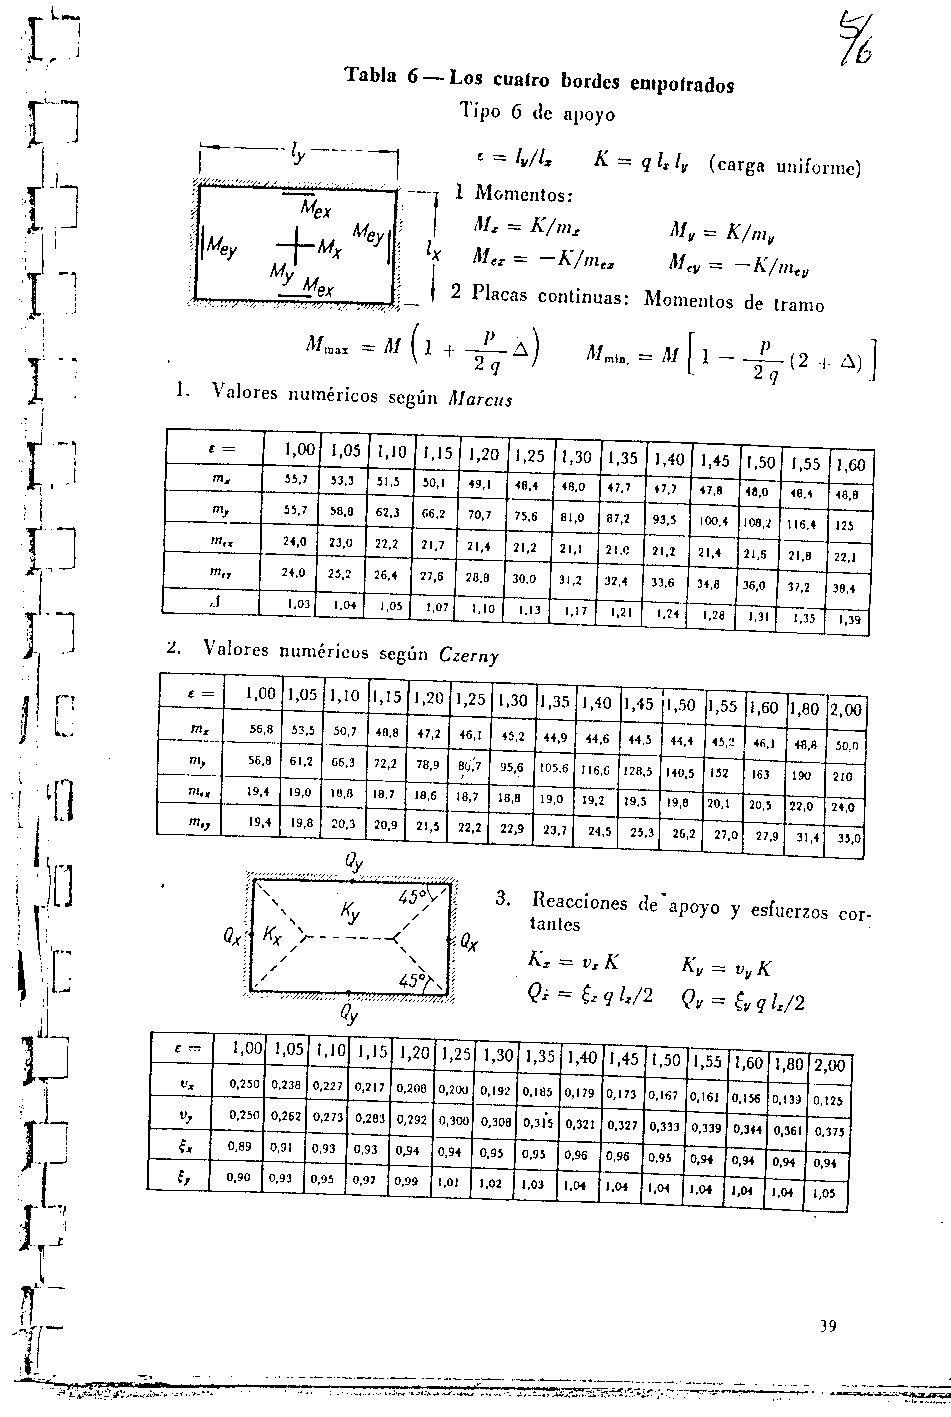 5/6
Tabla 6 — Los cuatro bordes empotrados
Tipo 6 de apoyo
ε = ly/lx K = q lx ly (carga uniforme)
ly
Mex
Mey
Mx
Mey
My
Mex
lx
1 Momentos:
Mx = K/mx My = K/my
Mex = −K/mex Mey = −K/mey
2 Placas continuas: Momentos de tramo
Mmax = M (1 + p/2q Δ) Mmin. = M [1 − p/2q (2 + Δ)]
1. Valores numéricos según Marcus
ε = 1,00 1,05 1,10 1,15 1,20 1,25 1,30 1,35 1,40 1,45 1,50 1,55 1,60
mx 55,7 53,3 51,5 50,1 49,1 48,4 48,0 47,7 47,7 47,8 48,0 48,4 48,8
my 55,7 58,8 62,3 66,2 70,7 75,6 81,0 87,2 93,5 100,4 108,2 116,4 125
mex 24,0 23,0 22,2 21,7 21,4 21,2 21,1 21,0 21,2 21,4 21,6 21,8 22,1
mey 24,0 25,2 26,4 27,6 28,8 30,0 31,2 32,4 33,6 34,8 36,0 37,2 38,4
Δ 1,03 1,04 1,05 1,07 1,10 1,13 1,17 1,21 1,24 1,28 1,31 1,35 1,39
2. Valores numéricos según Czerny
ε = 1,00 1,05 1,10 1,15 1,20 1,25 1,30 1,35 1,40 1,45 1,50 1,55 1,60 1,80 2,00
mx 56,8 53,5 50,7 48,8 47,2 46,1 45,2 44,9 44,6 44,5 44,4 45,2 46,1 48,8 50,0
my 56,8 61,2 66,3 72,2 78,9 86,7 95,6 105,6 116,6 128,5 140,5 152 163 190 210
mex 19,4 19,0 18,8 18,7 18,6 18,7 18,8 19,0 19,2 19,5 19,8 20,1 20,5 22,0 24,0
mey 19,4 19,8 20,3 20,9 21,5 22,2 22,9 23,7 24,5 25,3 26,2 27,0 27,9 31,4 35,0
Qy
45°
Ky
Qx
Kx
Qx
45°
Qy
3. Reacciones de apoyo y esfuerzos cor-
tantes
Kx = νx K Ky = νy K
Qx = ξx q lx/2 Qy = ξy q lx/2
ε = 1,00 1,05 1,10 1,15 1,20 1,25 1,30 1,35 1,40 1,45 1,50 1,55 1,60 1,80 2,00
νx 0,250 0,238 0,227 0,217 0,208 0,200 0,192 0,185 0,179 0,173 0,167 0,161 0,156 0,139 0,125
νy 0,250 0,262 0,273 0,283 0,292 0,300 0,308 0,315 0,321 0,327 0,333 0,339 0,344 0,361 0,375
ξx 0,89 0,91 0,93 0,93 0,94 0,94 0,95 0,95 0,96 0,96 0,95 0,94 0,94 0,94 0,94
ξy 0,90 0,93 0,95 0,97 0,99 1,01 1,02 1,03 1,04 1,04 1,04 1,04 1,04 1,04 1,05
39